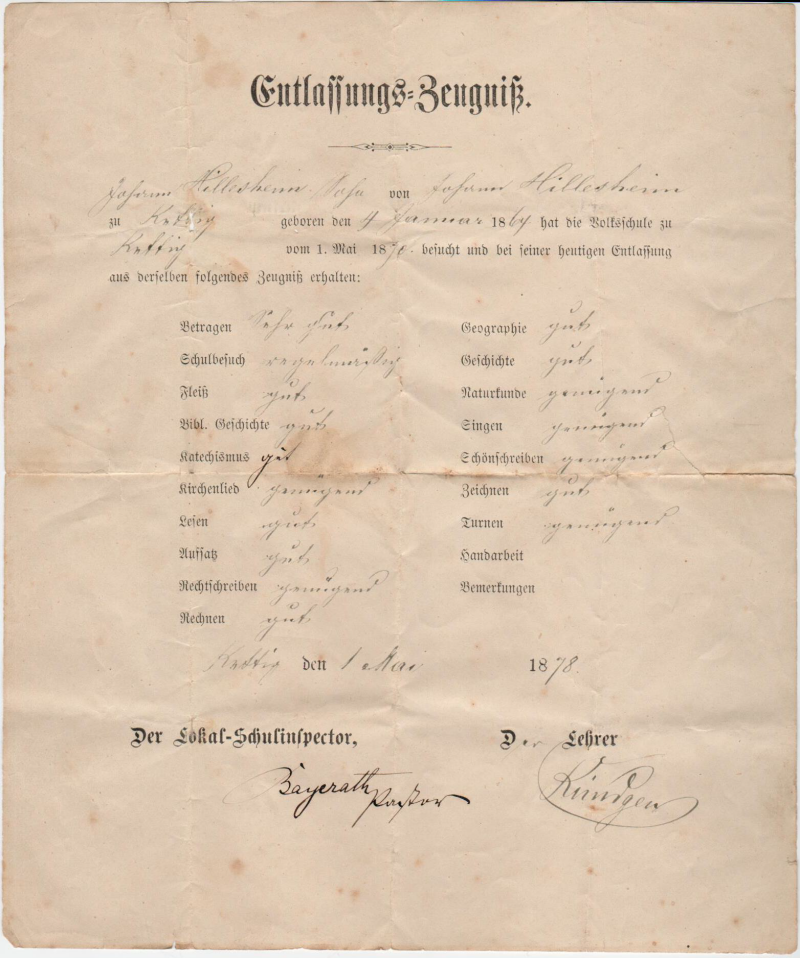 Entlassungs-Zeugniß.
Johann Hillesheim Sohn von Johann Hillesheim
zu Kettig geboren den 4 Januar 1864 hat die Volksschule zu
Kettig vom 1. Mai 1870 besucht und bei seiner heutigen Entlassung
aus derselben folgendes Zeugniß erhalten:
Betragen Sehr gut
Schulbesuch regelmässig
Fleiß gut
Bibl. Geschichte gut
Katechismus gut
Kirchenlied genügend
Lesen gut
Aufsatz gut
Rechtschreiben genügend
Rechnen gut
Geographie gut
Geschichte gut
Naturkunde genügend
Singen genügend
Schönschreiben genügend
Zeichnen gut
Turnen genügend
Handarbeit
Bemerkungen
Kettig den 1 Mai 1878.
Der Lokal-Schulinspector,
Bayerath Pastor
Der Lehrer